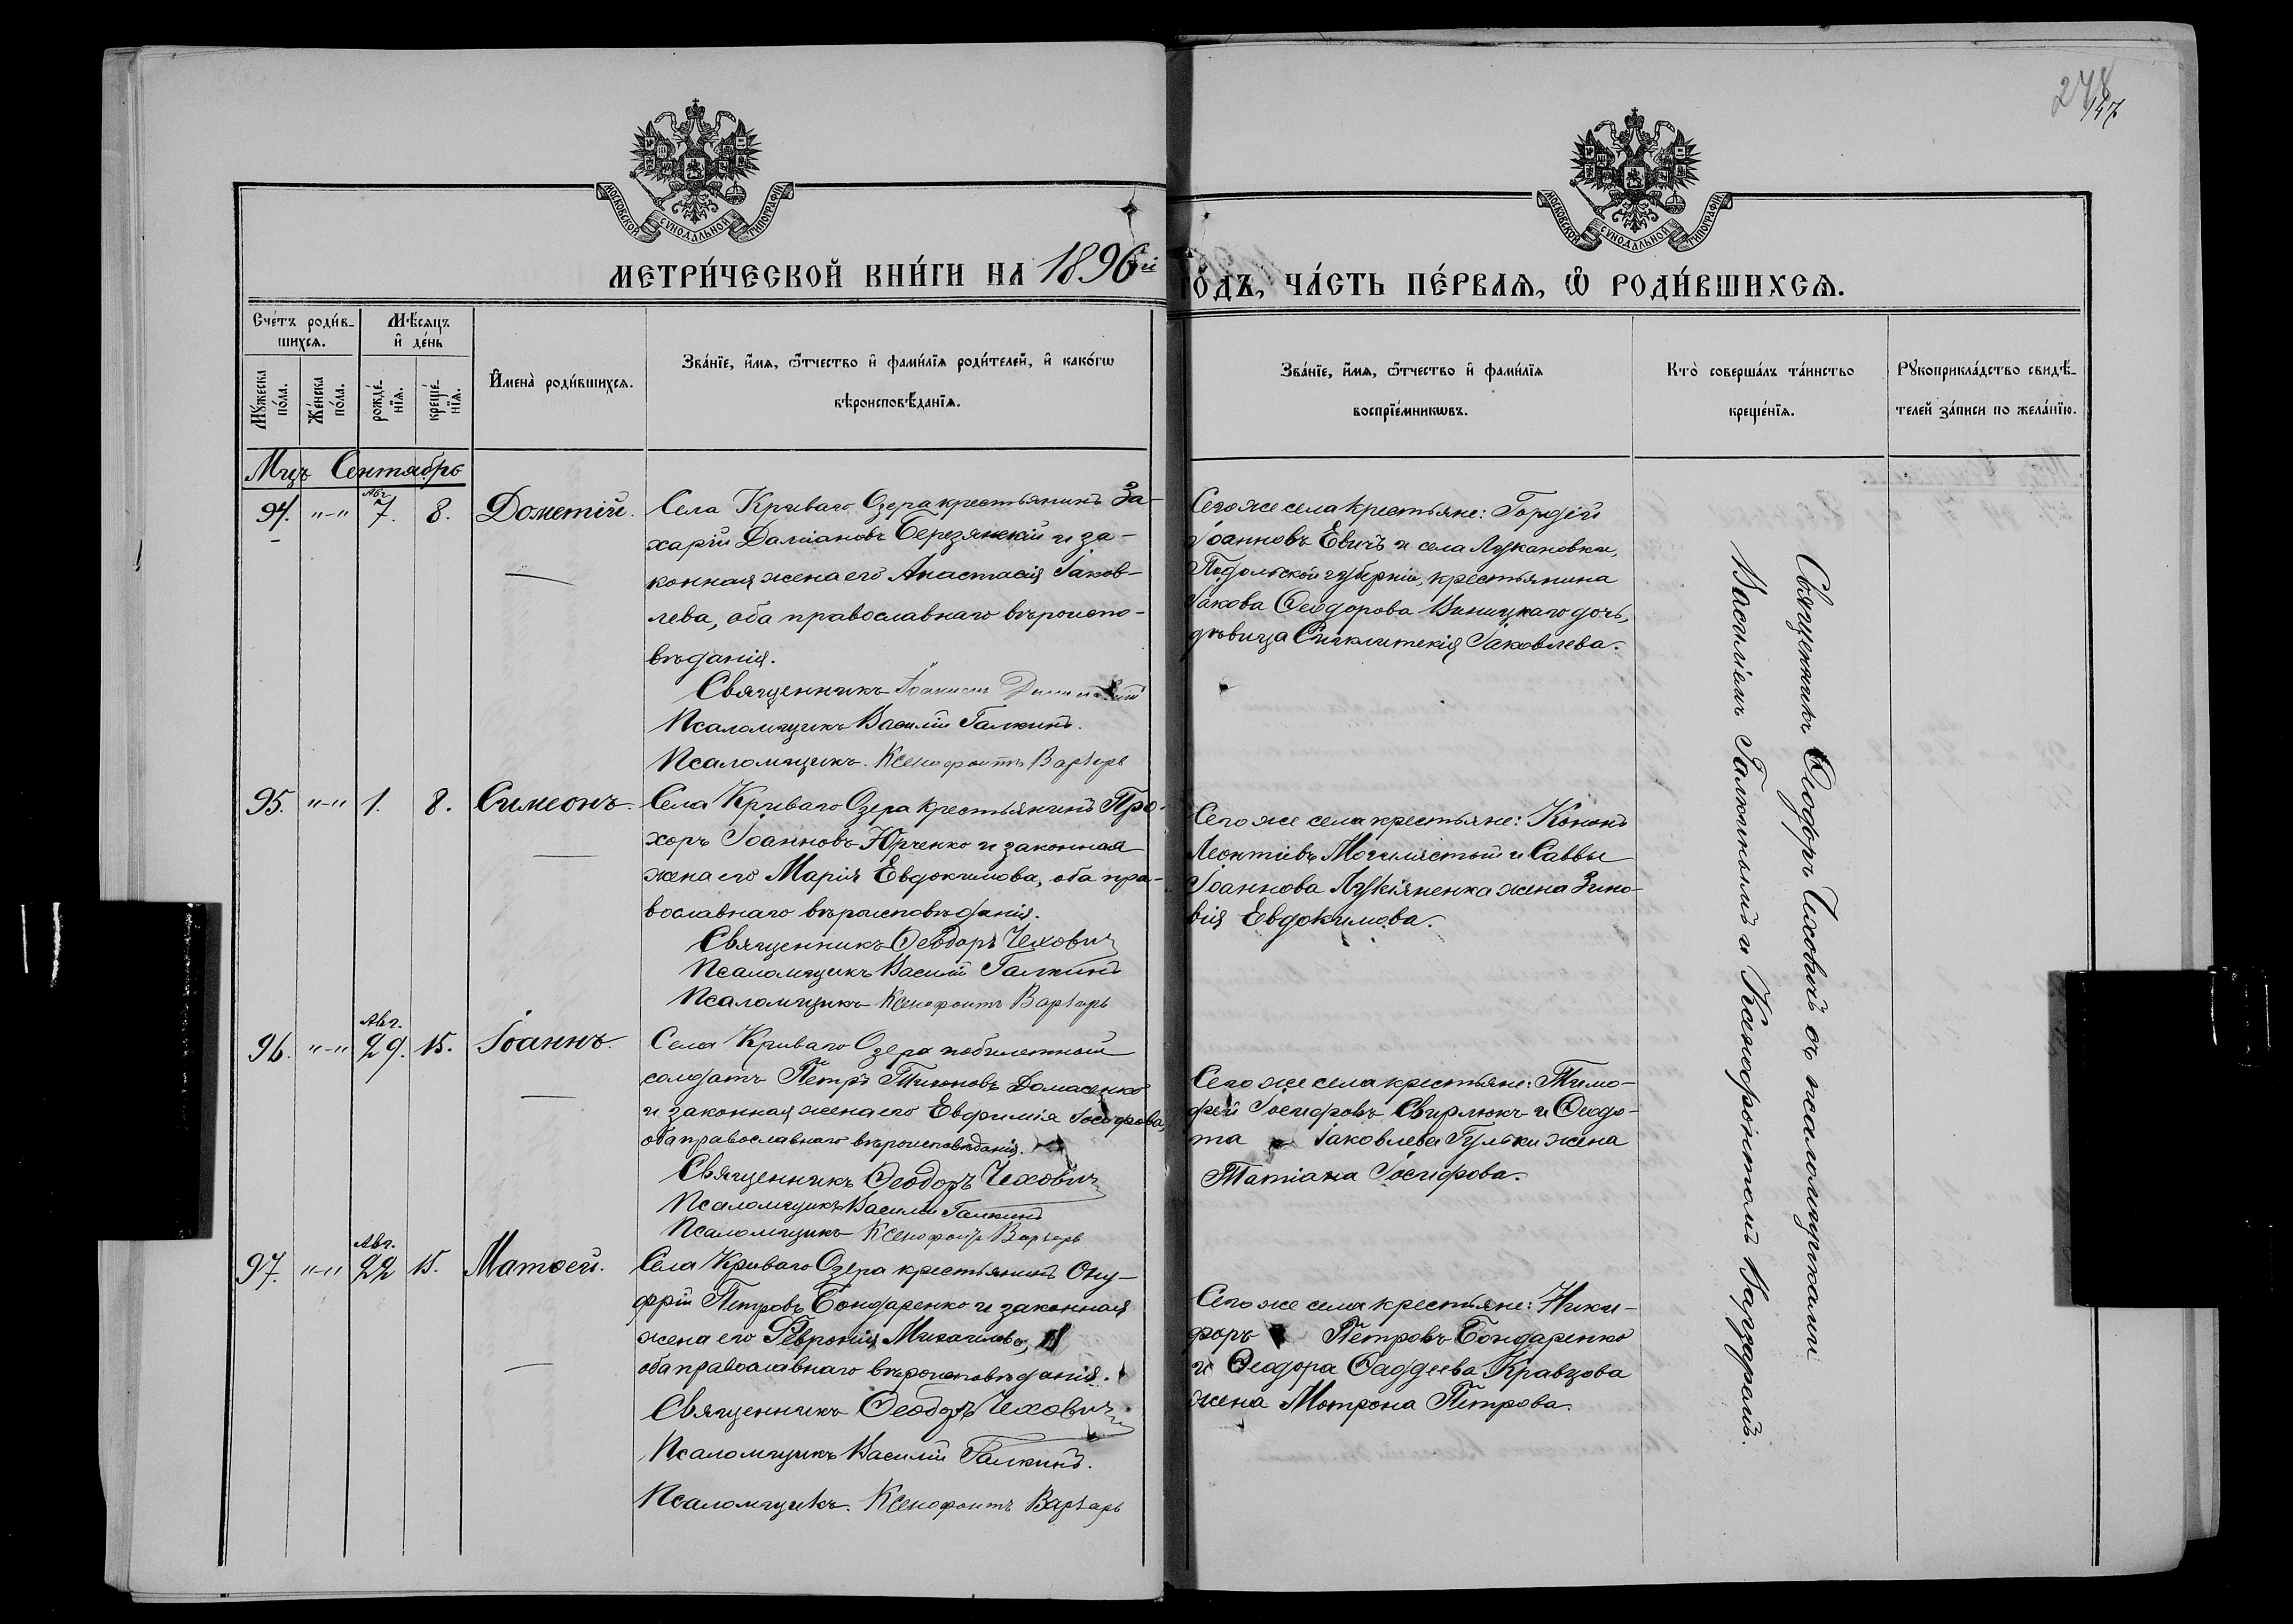 248
147
МОСКОВСКОЙ СѴНОДАЛЬНОЙ ТИПОГРАФІИ
МОСКОВСКОЙ СѴНОДАЛЬНОЙ ТИПОГРАФІИ
МЕТРИ́ЧЕСКОЙ КНИ́ГИ НА 1896й
ГО́ДЪ, ЧА́СТЬ ПЕ́РВАѦ, Ѡ҆ РОДИ́ВШИХСѦ.
Сче́тъ роди́в-
шихсѧ.
Мѣ́сѧцъ
и҆ де́нь
Мꙋ́жеска
по́ла.
Же́нска
по́ла.
рожде́-
нїѧ.
креще́-
нїѧ.
И҆мена̀ роди́вшихсѧ.
Зва́нїе, и҆́мѧ, ѻ҆́тчество и҆ фами́лїѧ роди́телей, и҆ како́гѡ
вѣроисповѣ́данїѧ.
Зва́нїе, и҆́мѧ, ѻ҆́тчество и҆ фами́лїѧ
воспрїе́мникѡвъ.
Кто̀ соверша́лъ та́инство
креще́нїѧ.
Рꙋкоприкла́дство свидѣ́-
телей за́писи по жела́нїю.
Мцъ Сентябрь
94. "-" Авг. 7. 8. Дометій.
Села Криваго Озера крестьянинъ За-
харій Даміановъ Березянскій и за-
конная жена его Анастасія Іаков-
лева, оба православнаго вѣроиспо-
вѣданія.
Священникъ Іоаннъ
Псаломщикъ Василій Галкинъ.
Псаломщикъ. Ксенофонтъ Варзарь
Сего же села крестьяне: Гордій
Іоанновъ Евичъ и села Лукановки,
Подольской губерніи, крестьянина
Іакова Ѳеодорова Виницкаго дочь,
дѣвица Синклитикія Іаковлева.
95. "-" 1. 8. Симеонъ.
Села Криваго Озера крестьянинъ Про-
хоръ Іоанновъ Юрченко и законная
жена его Марія Евдокимова, оба пра-
вославнаго вѣроисповѣданія.
Священникъ Ѳеодоръ Чеховичъ
Псаломщикъ Василій Галкинъ
Псаломщикъ Ксенофонтъ Варзарь
Сего же села крестьяне: Кононъ
Леонтіевъ Могилястый и Саввы
Іоаннова Лукіяненка жена Зино-
вія Евдокимова.
96. "-" Авг. 29. 15. Іоаннъ.
Села Криваго Озера побилетный
солдатъ Петръ Тихоновъ Домасенко
и законная жена его Евфимія Іосифова,
оба православнаго вѣроисповѣданія.
Священникъ Ѳеодоръ Чеховичъ
Псаломщикъ Василій Галкинъ
Псаломщикъ Ксенофонтъ Варзарь
Сего же села крестьяне: Тимо-
фей Іосифовъ Свирлюкъ и Ѳеодо-
та Іаковлева Гульки жена
Татіана Іосифова.
97. "-" Авг. 22 15. Матѳей.
Села Криваго Озера крестьянинъ Ону-
фрій Петровъ Бондаренко и законная
жена его Февронія Михаилова,
оба православнаго вѣроисповѣданія.
Священникъ Ѳеодоръ Чеховичъ
Псаломщикъ Василій Галкинъ.
Псаломщикъ. Ксенофонтъ Варзарь
Сего же села крестьяне: Ники-
форъ Петровъ Бондаренко
и Ѳеодора Ѳаддеева Кравцова
жена Мотрона Петрова.
Священникъ Ѳеодоръ Чеховичъ съ псаломщиками
Василіемъ Галкинымъ и Ксенофонтомъ Варзаремъ.